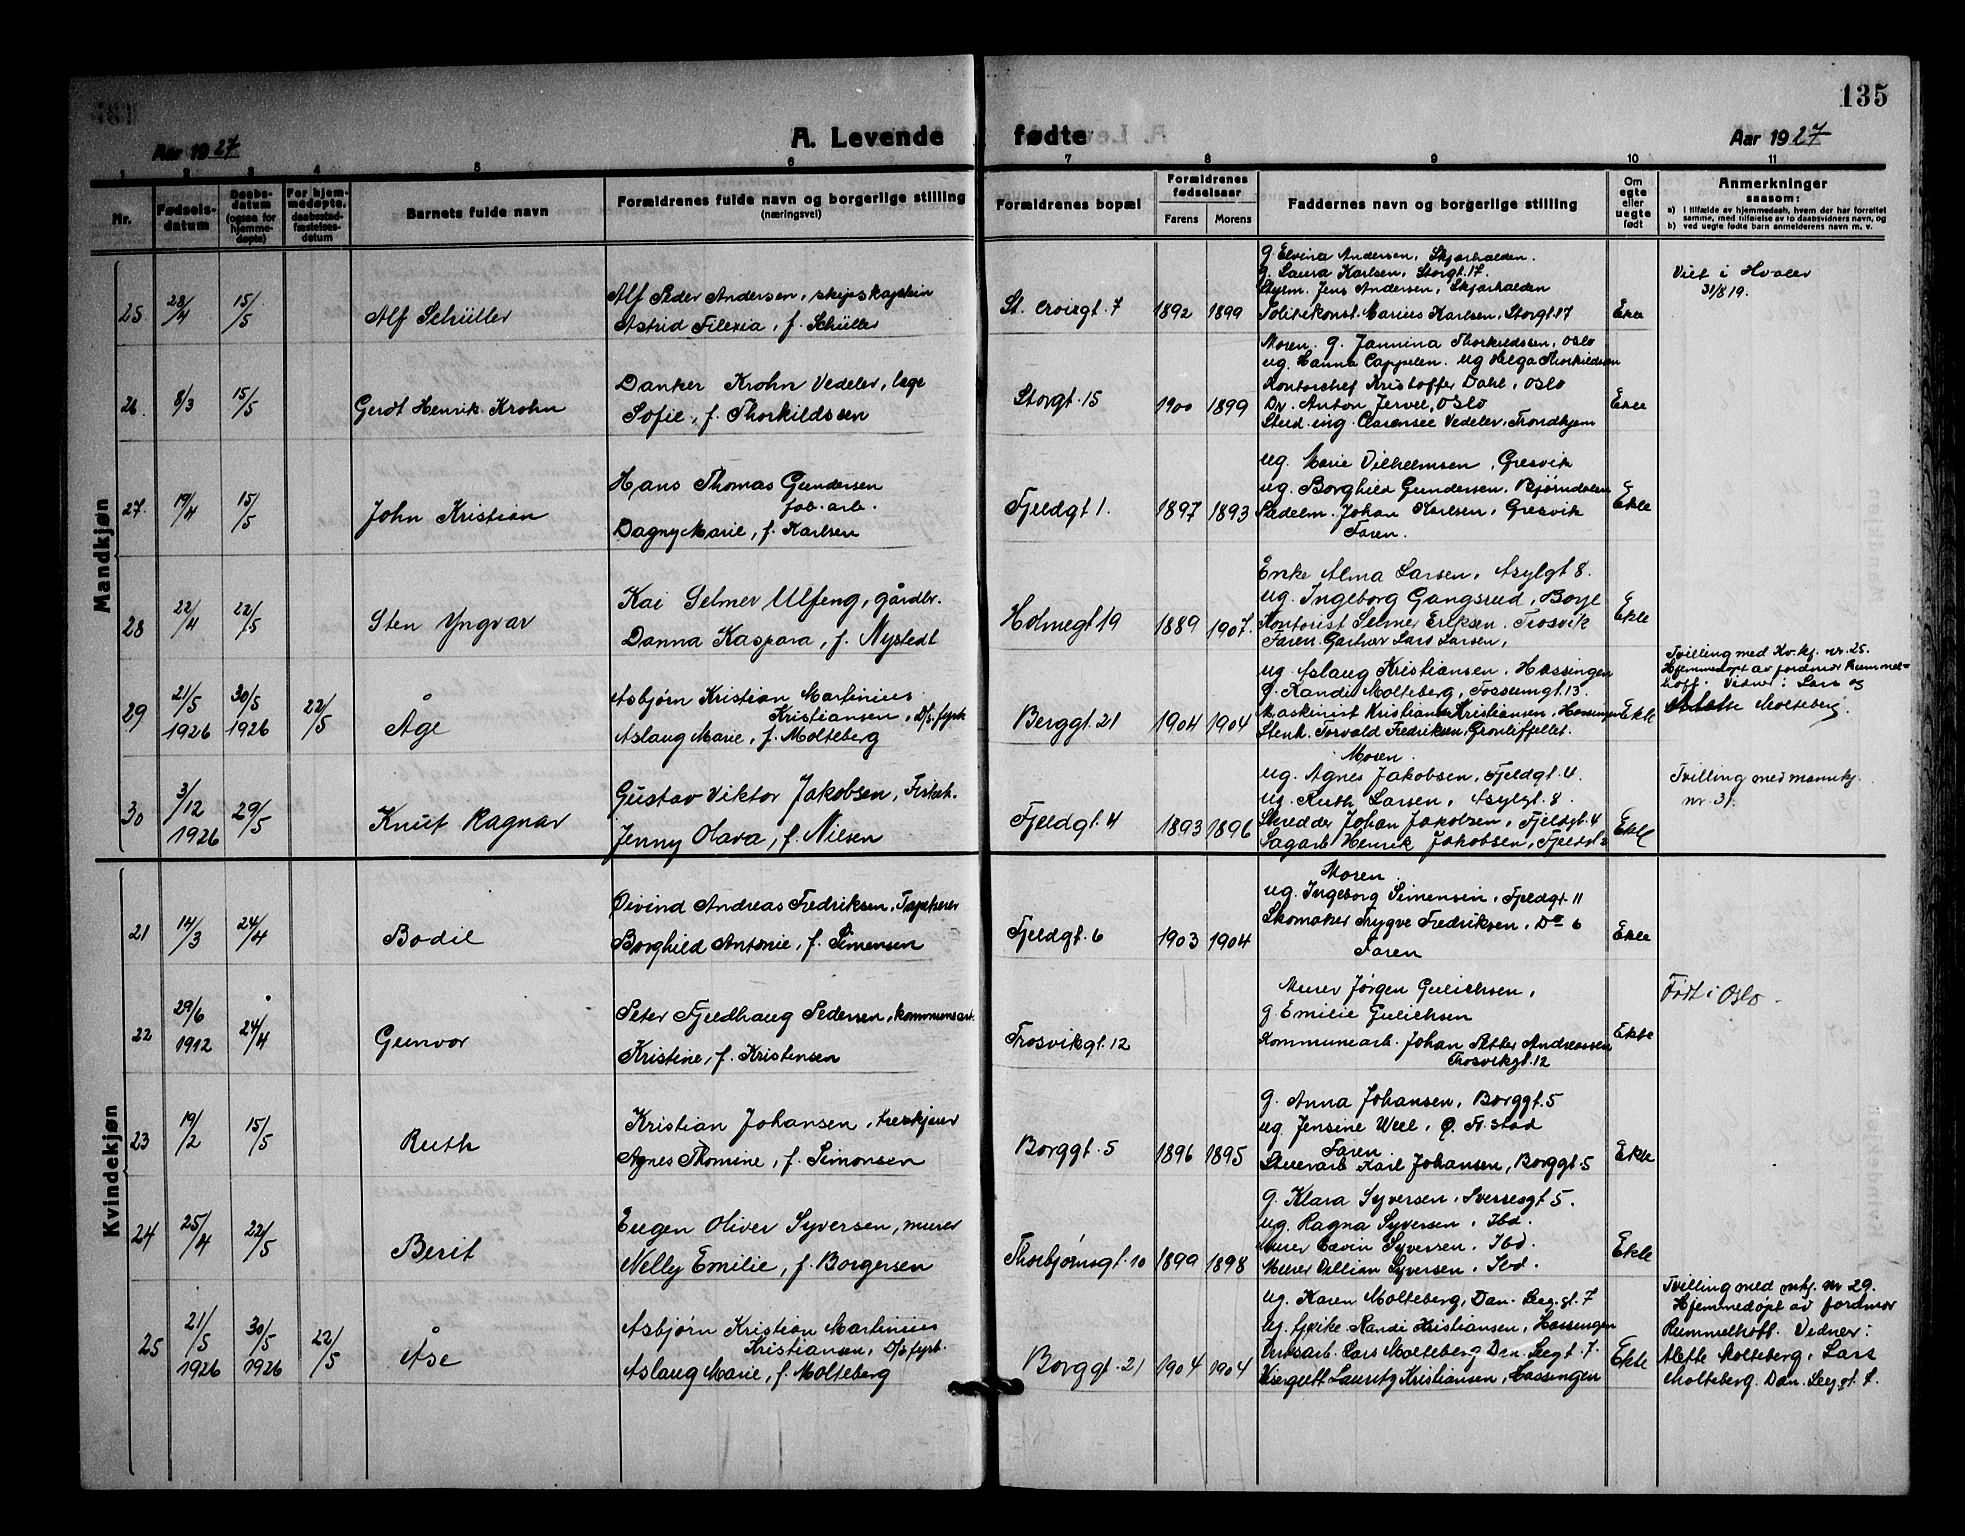 135
Aar 1927
A. Levende fødte
Aar 1927
1 2 3 4 5 6 7 8 9 10 11
Nr.
Fødselsdatum
Daabsdatum (ogsaa for hjemmedøpte)
For hjemmedøpte, daabsstadfæstelsesdatum
Barnets fulde navn
Forældrenes fulde navn og borgerlige stilling
(næringsvei)
Forældrenes bopæl
Forældrenes fødselsaar
Farens Morens
Faddernes navn og borgerlige stilling
Om egte eller uegte født
Anmerkninger
saasom:
a) i tilfælde av hjemmedaab, hvem der har forrettet
samme, med tilføielse av to daabsvidners navn, og
b) ved uegte fødte barn anmelderens navn m. v.
Mandkjøn
25. 28/4 15/5 Alf Schüller
Alf Peder Andersen, skipskaptein
Astrid Filexia, f. Schüller
St. Croixgt. 7 1892 1899
g. Elvina Andersen, Skjærhalden.
g. Laura Karlsen, Storgt. 17.
Styrm. Jens Andersen, Skjærhalden
Politikonst. Marius Karlsen, Storgt. 17
Ekte
Viet i Hvaler
31/8 19.
26. 8/3 15/5 Gerdt Henrik Krohn
Danker Krohn Vedeler, læge
Sofie, f. Thorkildssen
Storgt. 15 1900 1899
Moren. g. Jannina Thorkildssen, Oslo
ug. Hanna Cappelen. ug Helga Thorkildsen
Kontorchef Kristoffer Dahl, Oslo
Dr. Anton Jervel, Oslo
Stud. ing. Clarensee Vedeler, Trondhjem
Ekte
27. 19/4 15/5 John Kristian
Hans Thomas Gundersen
fab. arb.
Dagny Marie, f. Karlsen
Fjeldgt 1. 1897 1893
ug. Marie Vilhelmsen, Gresvik
ug. Borghild Gundersen, Bjørndalen
Sadelm. Johan Karlsen, Gresvik
Faren.
Ekte
28 22/4 22/5 Sten Yngvar
Kai Selmer Ulfeng, gårdbr.
Danna Kaspara, f. Nystedt
Holmegt 19 1889 1907.
Enke Alma Larsen, Asylgt 8.
ug. Ingeborg Gangsrud, Borge
Kontorist Selmer Eriksen. Trosvik
Faren. Gartner Lars Larsen,
Ekte
29 21/5 1926 30/5 1926 22/5 Åge
Asbjørn Kristian Martinius
Kristiansen, D/s. fyrb
Aslaug Marie, f. Molteberg
Berggt 21 1904 1904
ug. Aslaug Kristiansen, Hassingen
g. Randi Molteberg, Fossumgt. 13.
Maskinist Kristian Kristiansen, Hassingen
Stenh. Torvald Fredriksen, Grønlifjellet.
Ekte
Tvilling med Kv. kj. nr. 25.
Hjemmedøpt av jordmor Rummelhoff. Vidner: Lars og
Molteberg.
30 3/12 1926 29/5 Knut Ragnar
Gustav Viktor Jakobsen, Fiskeh.
Jenny Olava, f. Nilsen
Fjeldgt. 4 1893 1896
Moren
ug. Agnes Jakobsen, Fjeldgt. 4.
ug. Ruth Larsen, Asylgt. 8.
Skredder Johan Jakobsen, Fjeldgt. 4
Sagarb Henrik Jakobsen, Fjeldgt 2
Ekte
Tvilling med mannkj.
nr. 31.
Kvindekjøn
21 14/3 24/4 Bodil
Øivind Andreas Fredriksen, Tapetserer
Borghild Antonie, f. Simensen
Fjeldgt. 6 1903 1904
Moren.
ug. Ingeborg Simensen, Fjeldgt. 11
Skomaker Trygve Fredriksen, Do 6
Faren
Ekte
22 29/6 1912 24/4 Gunvor
Peter Fjeldhaug Pedersen, kommunearb.
Kristine, f. Kristensen
Trosvikgt. 12
Murer Jørgen Gulichsen,
g. Emilie Gulichsen
Kommunearb. Johan Petter Andreassen
Trosvikgt. 12
Ekte
Født i Oslo
23 19/2 15/5 Ruth
Kristian Johansen, trækjører
Agnes Thomine, f. Simonsen
Borggt. 5 1896 1895
g. Anna Johansen, Borggt. 5
ug. Jensine Weel, Ø. Fr. stad
Faren.
Stuerarb Karl Johansen, Borggt. 5
Ekte
24 25/4 22/5 Berit
Eugen Oliver Syversen, murer
Nelly Emilie, f. Borgersen
Thorbjørnsgt. 10 1899 1898
g. Klara Syversen, Sverresgt 5.
ug. Ragna Syversen, Ibd.
Murer Edvin Syversen, Ibd.
Murer Villian Syversen, Ibd.
Ekte
25 21/5 1926 30/5 1926 22/5 Åse
Asbjørn Kristian Martinius
Kristiansen, D/s. fyrb.
Aslaug Marie, f. Molteberg
Borggt. 21 1904 1904
ug. Karen Molteberg, Dan. Leeg. gt. 7
Randi Kristiansen, Hassingen
Verksarb. Lars Molteberg Dan. Leegt. 7.
Visergutt Lauritz Kristiansen, Hassingen
Ekte
Tvilling med mkj. nr 29.
Hjemmedøpt av jordmor
Rummelhoff. Vidner:
Alette Molteberg, Lars
Molteberg. Dan. Leeg. gt. 7.